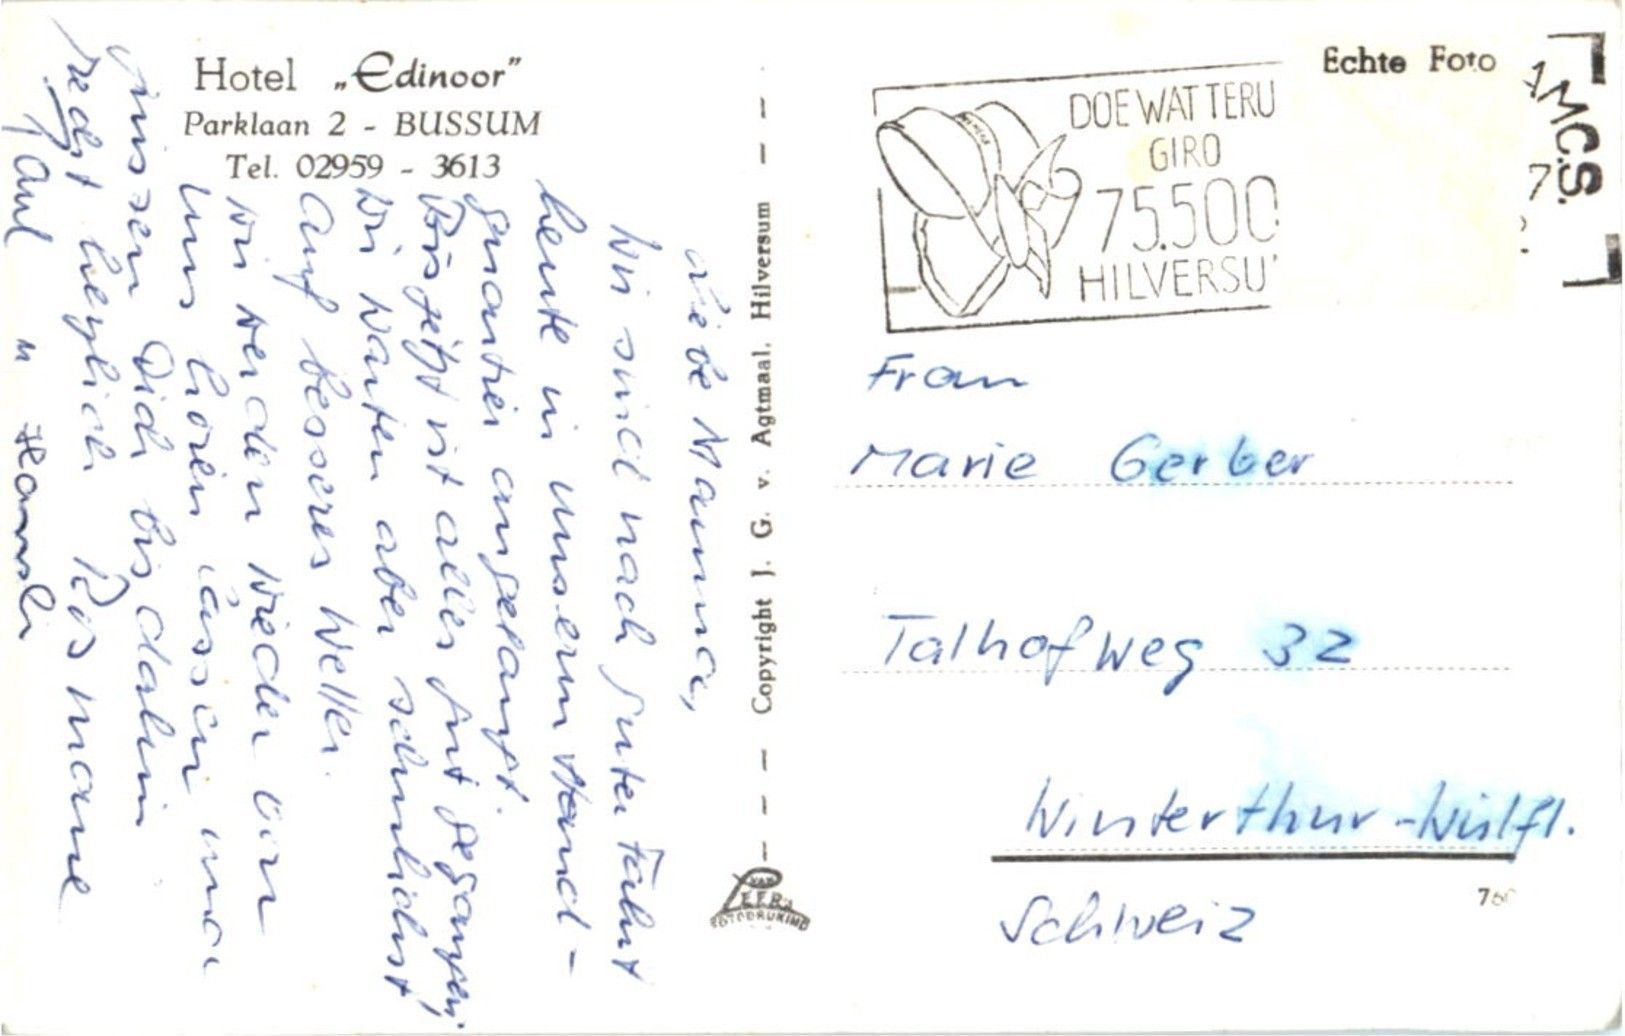 Hotel „Edinoor”
Parklaan 2 - BUSSUM
Tel. 02959 - 3613
Liebe Mamma,
Wir sind nach guter Fahrt
heute in unserm Stand-
quartier angelangt.
Bis jetzt ist alles gut gegangen,
wir warten aber sehnlichst
auf besseres Wetter.
Wir werden wieder von
uns hören lassen und
grüssen Dich bis dahin
recht herzlich Rosmarie
Paul u Hansli
Copyright J. G. v. Agtmaal, Hilversum
VAN
LEER's
FOTODRUKIND
Echte Foto
DOE WAT TERU
GIRO
75.500
HILVERSU
M.C.S.
7
Frau
Marie Gerber
Talhofweg 32
Winterthur-Wülfl.
Schweiz